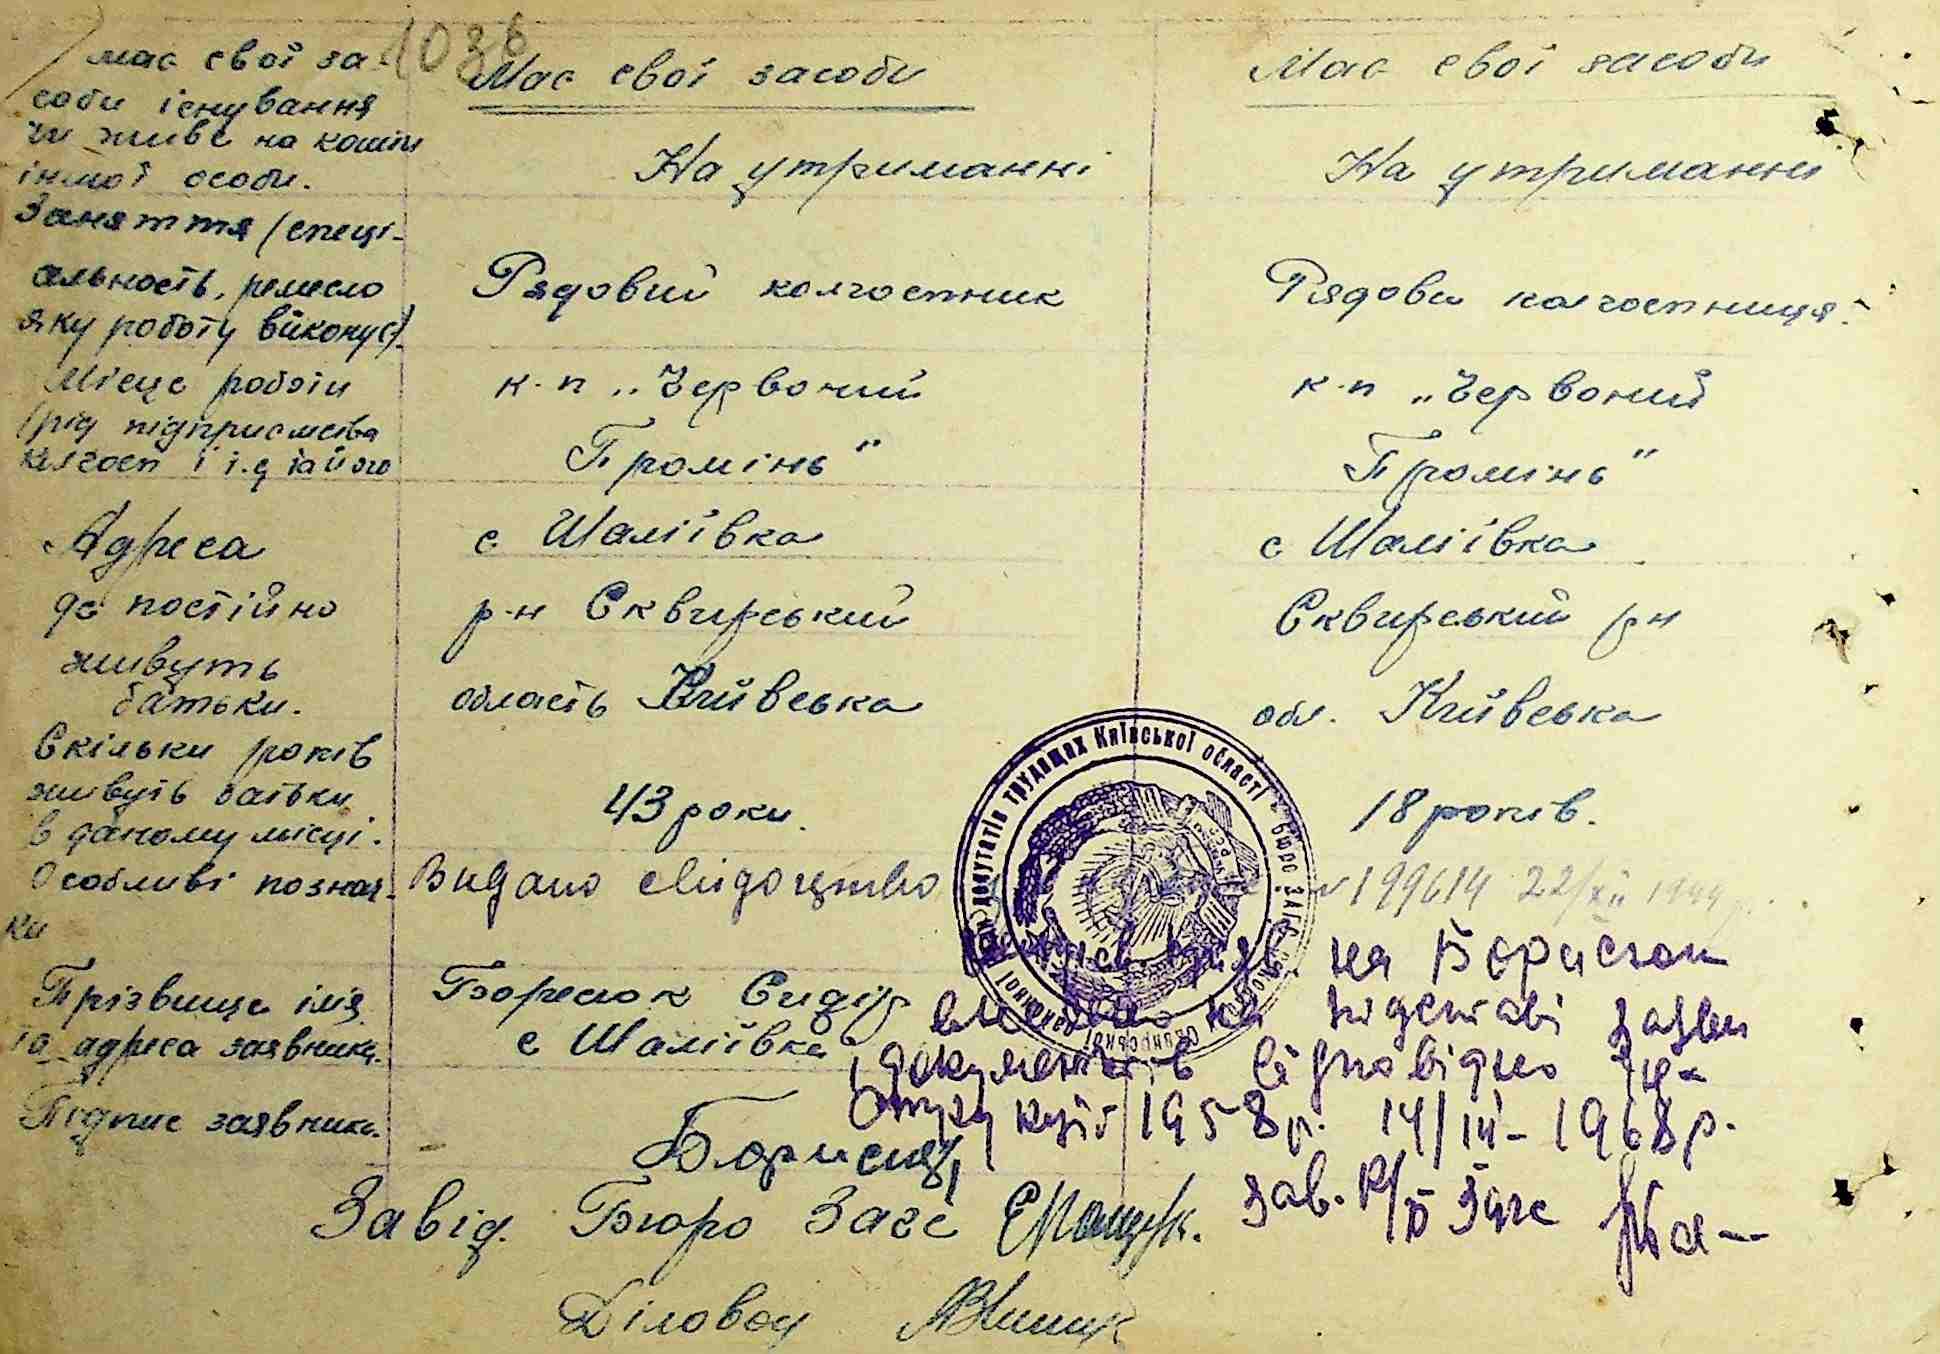 103в
має свої за-
соби існування
чи живе на кошти
іншої особи.
Має свої засоби
На утриманні
Має свої засоби
На утриманні
Заняття (спеці-
альность, ремесло
яку роботу виконує)
Рядовий колгоспник
Рядова колгоспниця
Місце роботи
(рід підприємства
колгосп і і.д. та його
к-п „Червоний
Промінь"
к-п „Червоний
Промінь"
Адреса
де постійно
живуть
батьки.
с Шаліївка
р-н Сквирський
область Київська
с Шаліївка
Сквирський р-н
обл. Київська
Скільки років
живуть батьки
в даному місці.
43 роки.
18 років.
Особливі познач-
ки
Видано свидоцтво
N 199614 22/XII 1944
Прізвище ім'я
та адреса заявника.
Борисюк Сидір
с Шаліївка
Підпис заявника.
Борисюк
на Борисюк
на підставі заяви
і документів відповідно
1958 р. 14/III - 1968 р.
зав. Р/Б Загс
Завід. Бюро Загс
Діловод
депутатів трудящих Київської області бюро ЗАГС
Сквирської районної